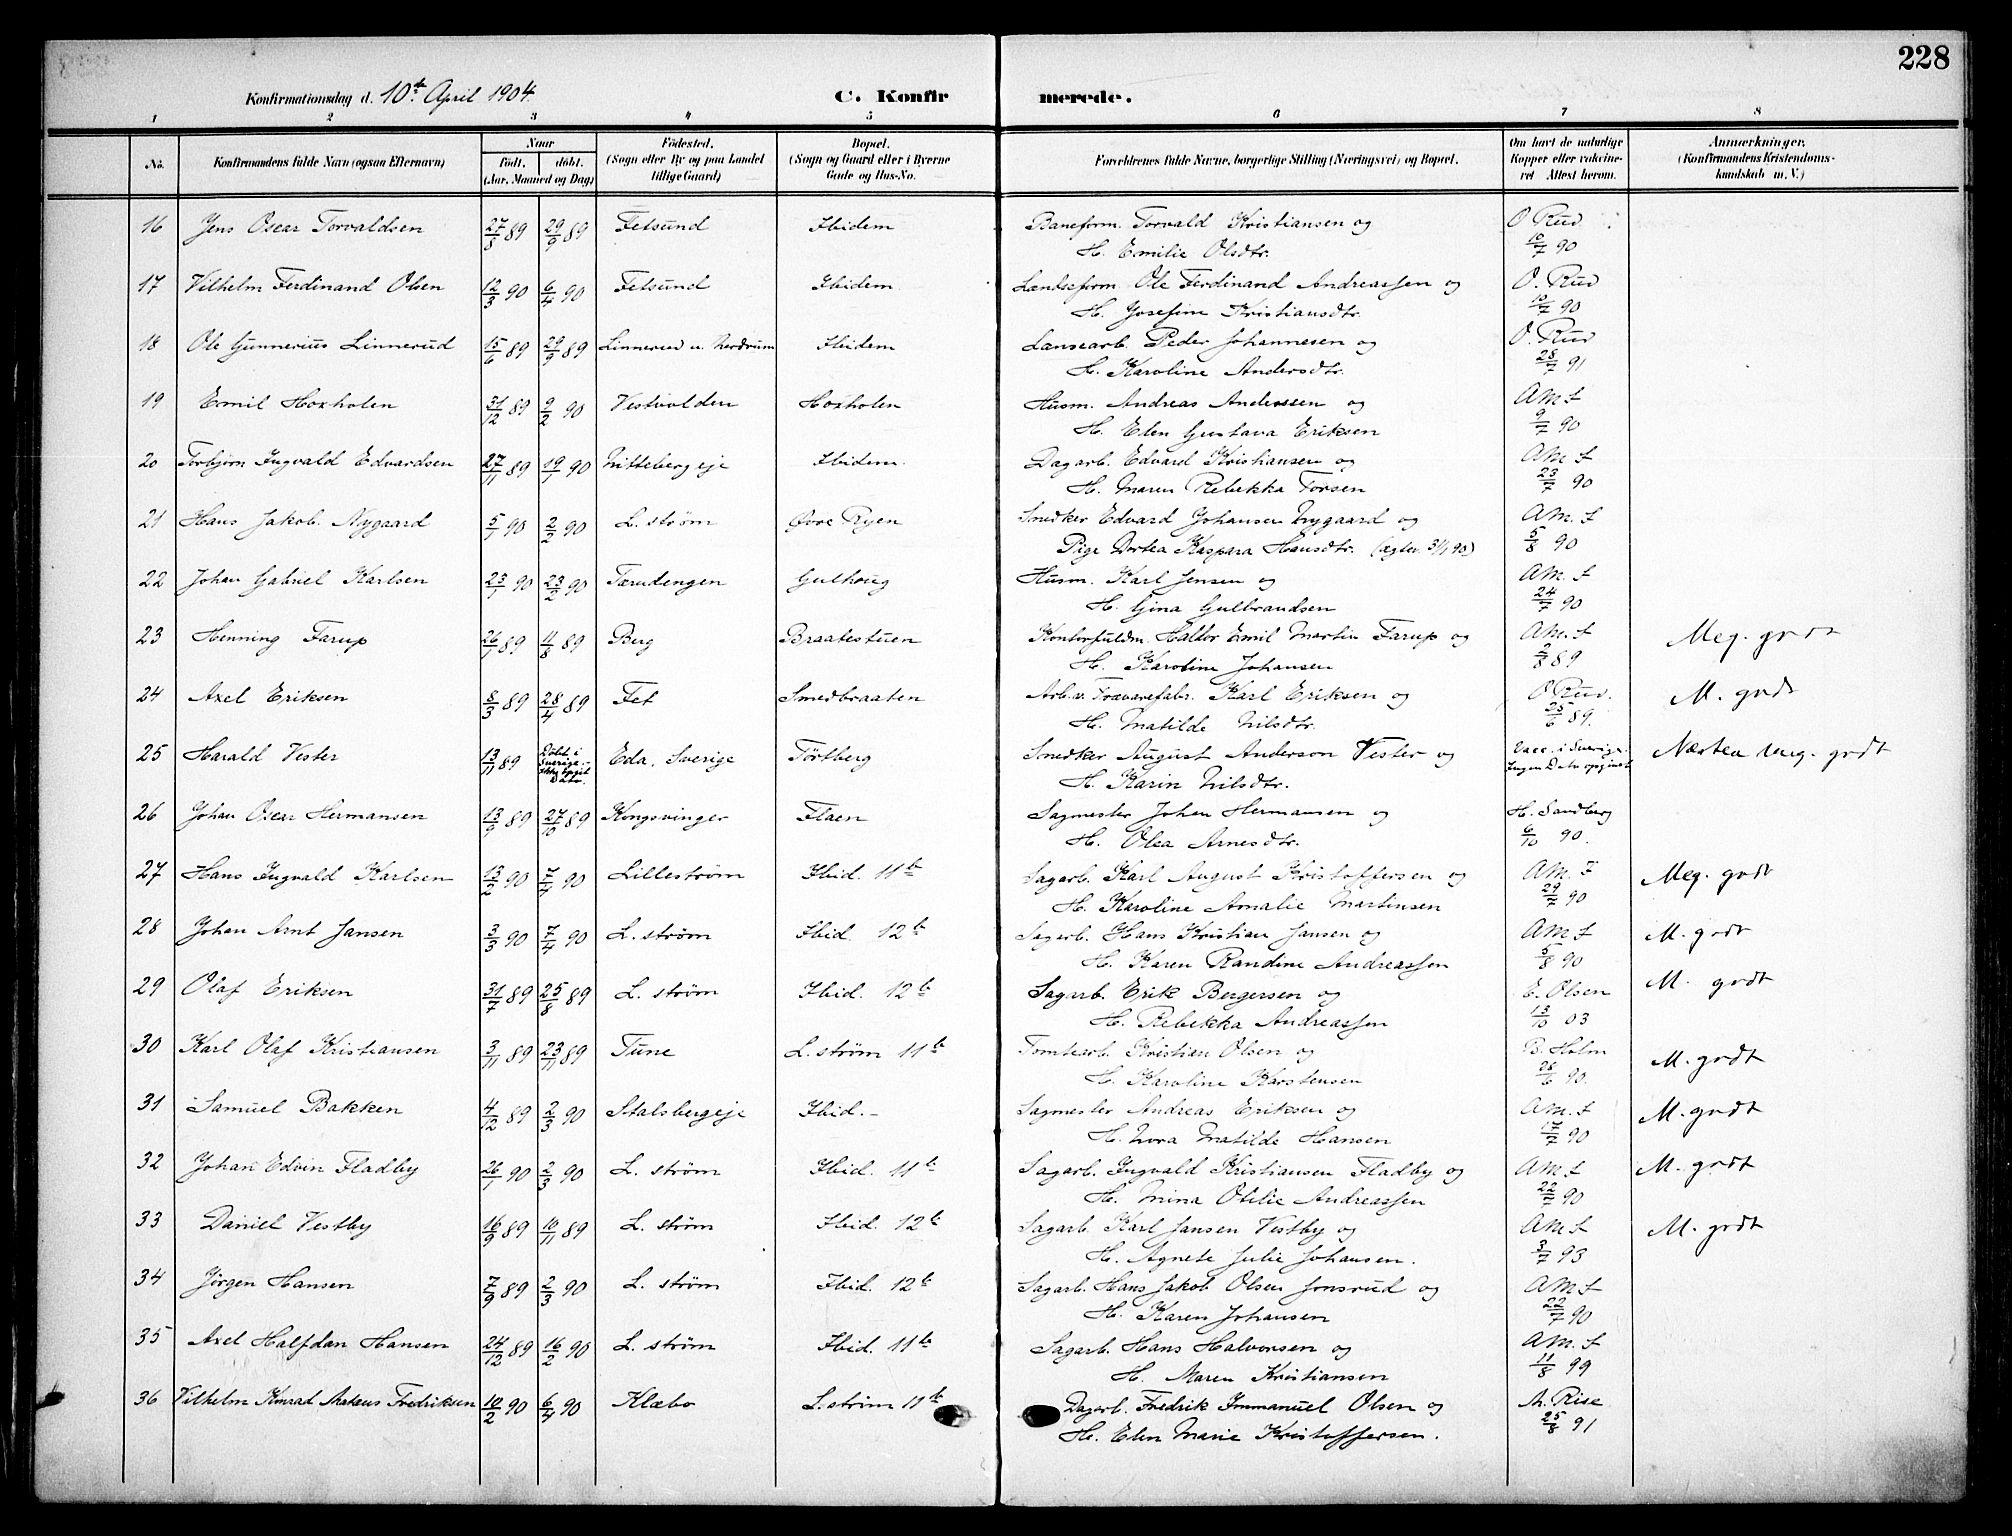 228
Konfirmationsdag d. 10de April 1904.
C. Konfirmerede.
1 2 3 4 5 6 7 8
No. Konfirmandens fulde Navn (ogsaa Efternavn) Naar født, døbt. (Aar, Maaned og Dag) Fødested. (Sogn eller By og paa Landet tillige Gaard) Bopæl. (Sogn og Gaard eller i Byerne Gade og Hus-No. Forældrenes fulde Navne, borgerlige Stilling (Næringsvei) og Bopæl. Om havt de naturlige Kopper eller vaksineret Attest herom. Anmærkninger. (Konfirmandens Kristendomskundskab m. V.)
16 Jens Oscar Torvaldsen 27/8 89 29/9 89 Fetsund Ibidem Baneform. Torvald Kristiansen og O Rud
H. Emilie Olsdtr. 10/7 90
17 Vilhelm Ferdinand Olsen 12/3 90 6/4 90 Fetsund Ibidem Lændseform. Ole Ferdinand Andreassen og O. Rud
H. Josefine Kristiansdtr. 10/7 90
18 Ole Gunnerius Linnerud 15/6 89 29/9 89 Linnerud u. Nerdrum Ibidem Lænsearb. Peder Johannesen og O. Rud
H. Karoline Andersdtr. 28/7 91
19 Emil Hoxholen 31/12 89 9/2 90 Vestvolden Hoxholen Husm. Andreas Anderssen og AM. f
H. Elen Gustava Eriksen 9/7 90
20 Torbjørn Ingvald Edvardsen 27/11 89 19/1 90 Nittebergeje Ibidem. Dagarb. Edvard Kristiansen og AM. f
H. Maren Rebekka Torsen 23/7 90
21 Hans Jakob Nygaard 5/1 90 2/2 90 L. strøm Øvre Ryen Snedker Edvard Johansen Nygaard og AM. f
Pige Dortea Kaspara Hansdtr. (ægtev. 31/1 90) 5/8 90
22 Johan Gabriel Karlsen 23/1 90 23/2 90 Tærudengen Gulhoug Husm. Karl Jensen og AM. f
H. Gina Gulbrandsen 24/7 90
23 Henning Farup 26/1 89 11/8 89 Berg Braatestuen Kontorfuldm. Haltor Emil Martin Farup og AM. f Meg. godt
H. Karoline Johansen 2/8 89
24 Axel Eriksen 8/3 89 28/4 89 Fet Smedbraaten Arb. v. Trævarefabr. Karl Eriksen og O Rud. M. godt
H. Matilde Nilsdtr. 25/6 89.
25 Harald Vester 13/11 89 Døbt i Sverige. – Ikke opgit Dato. Eda, Sverige Törtberg Snedker August Anderson Vester og Vacc. i Sverige. Ingen Dato opgivet Næsten meg. godt
H. Karin Nilsdtr.
26 Johan Oscar Hermansen 13/9 89 27/10 89 Kongsvinger Flaen Sagmester Johan Hermansen og H. Sandberg
H. Olea Arnesdtr. 6/10 90.
27 Hans Ingvald Karlsen 13/2 90 7/4 90 Lillestrøm Ibid. 11te Sagarb. Karl August Kristoffersen og AM. f Meg. godt
H. Karoline Amalie Martinsen 29/7 90
28 Johan Arnt Jansen 3/3 90 7/4 90 L. strøm Ibid. 12te Sagarb. Hans Kristian Jansen og AM f M. godt
H. Karen Randine Andreassen 5/8 90
29 Olaf Eriksen 31/7 89 25/8 89 L. strøm Ibid. 12te Sagarb. Erik Bergersen og E. Olsen M. godt
H. Rebekka Andreassen 13/10 03
30 Karl Olaf Kristiansen 3/11 89 23/11 89 Tune L. strøm 11te Tomtearb. Kristian Olsen og B. Holm M. godt
H. Karoline Karstensen 26/6 90.
31 Samuel Bakken 4/12 89 2/3 90 Stalsbergeje Ibid. – Sagmester Andreas Eriksen og AM. f M. godt
H. Nora Matilde Hansen 17/7 90
32 Johan Edvin Fladby 26/1 90 2/3 90 L. strøm Ibid. 11te Sagarb. Ingvald Kristiansen Fladby og AM f M. godt
H. Mina Otilie Andreassen 22/7 90
33 Daniel Vestby 16/9 89 10/11 89 L. strøm Ibid. 12te Sagarb. Karl Jansen Vestby og AM f M. godt
H. Agnete Julie Johansen. 3/7 93
34 Jørgen Hansen 7/9 89 2/3 90 L. strøm Ibid. 12te Sagarb. Hans Jakob Olsen Jonsrud og AM f
H. Karen Johansen 22/7 90
35 Axel Halfdan Hansen 24/12 89 16/2 90 L. strøm Ibid. 11te Sagarb. Hans Halvorsen og AM. f
H. Maren Kristiansen 11/8 99
36 Vilhelm Konrad Mateus Fredriksen 10/2 90 6/4 90 Klæbo L. strøm 11te Dagarb. Fredrik Immanuel Olsen og M. Rise
H. Elen Marie Kristoffersen. 25/8 91